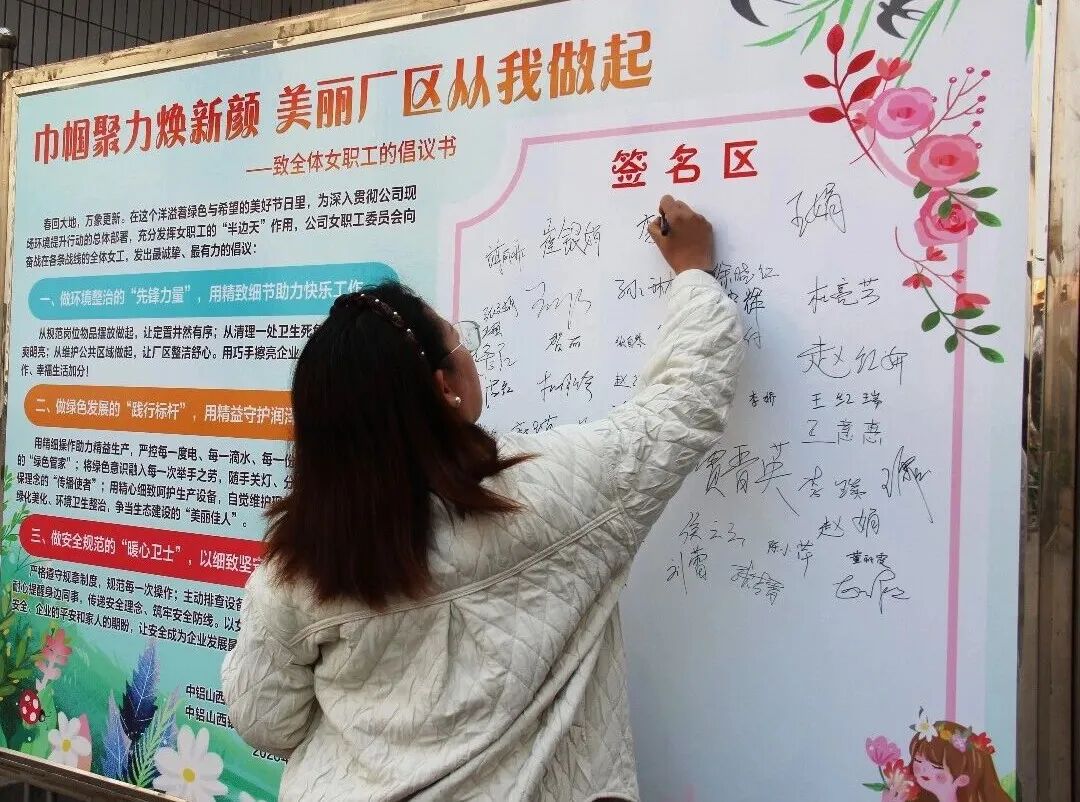 巾帼聚力焕新颜 美丽厂区从我做起
——致全体女职工的倡议书
春回大地，万象更新。在这个洋溢着绿色与希望的美好节日里，为深入贯彻公司现
场环境提升行动的总体部署，充分发挥女职工的“半边天”作用，公司女职工委员会向
奋战在各条战线的全体女工，发出最诚挚、最有力的倡议：
一、做环境整治的“先锋力量”，用精致细节助力快乐工作
从规范岗位物品摆放做起，让定置井然有序；从清理一处卫生死
爽明亮；从维护公共区域做起，让厂区整洁舒心。用巧手擦亮企业
作、幸福生活加分！
二、做绿色发展的“践行标杆”，用精益守护润泽
用精细操作助力精益生产，严控每一度电、每一滴水、每一份
的“绿色管家”；将绿色意识融入每一次举手之劳，随手关灯、分
保理念的“传播使者”；用精心细致呵护生产设备，自觉维护
绿化美化、环境卫生整治，争当生态建设的“美丽佳人”。
三、做安全规范的“暖心卫士”，以细致坚守
严格遵守规章制度，规范每一次操作；主动排查设备
耐心提醒身边同事，传递安全理念、筑牢安全防线。以女
安全、企业的平安和家人的期盼，让安全成为企业发展
中铝山西
中铝山西
签名区
崔银娟
王娟
徐晓红
杜亮芸
赵红妍
李娇
王红瑞
王慧
贾晋英
赵娟
陈小苹
刘蕾